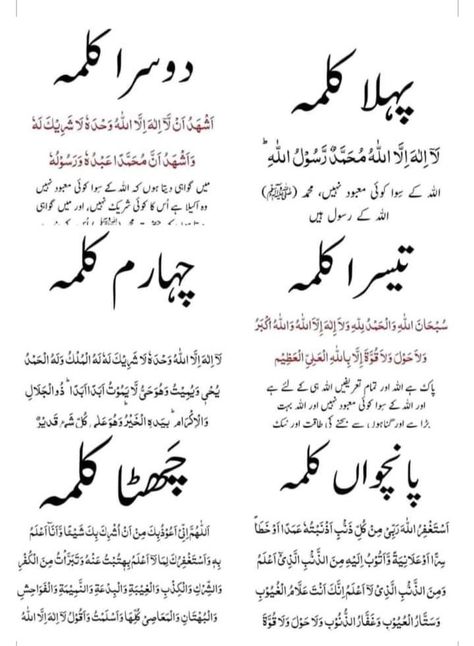 پہلا کلمہ
لَآ اِلٰهَ اِلَّا اللّٰهُ مُحَمَّدٌ رَّسُوْلُ اللّٰهِ ؕ
اللہ کے سِوا کوئی معبود نہیں، محمد (ﷺ)
اللہ کے رسول ہیں
دوسرا کلمہ
اَشْهَدُ اَنْ لَّآ اِلٰهَ اِلَّا اللّٰهُ وَحْدَهٗ لَا شَرِيْكَ لَهٗ
وَاَشْهَدُ اَنَّ مُحَمَّدًا عَبْدُهٗ وَرَسُوْلُهٗ
میں گواہی دیتا ہوں کہ اللہ کے سِوا کوئی معبود نہیں
وہ اکیلا ہے اُس کا کوئی شریک نہیں، اور میں گواہی
تیسرا کلمہ
سُبْحَانَ اللّٰهِ وَالْحَمْدُ لِلّٰهِ وَلَا اِلٰهَ اِلَّا اللّٰهُ وَاللّٰهُ اَكْبَرُ
وَلَا حَوْلَ وَلَا قُوَّةَ اِلَّا بِاللّٰهِ الْعَلِيِّ الْعَظِيْمِ
پاک ہے اللہ اور تمام تعریفیں اللہ ہی کے لئے ہے
اور اللہ کے سِوا کوئی معبود نہیں اور اللہ بہت
بڑا ہے اور گناہوں سے بچنے کی طاقت اور نیک
چہارم کلمہ
لَآ اِلٰهَ اِلَّا اللّٰهُ وَحْدَهٗ لَا شَرِيْكَ لَهٗ لَهُ الْمُلْكُ وَلَهُ الْحَمْدُ
يُحْيٖ وَيُمِيْتُ وَهُوَ حَيٌّ لَّا يَمُوْتُ اَبَدًا اَبَدًا ؕ ذُو الْجَلَالِ
وَالْاِكْرَامِ ؕ بِيَدِهِ الْخَيْرُ وَهُوَ عَلٰى كُلِّ شَیْءٍ قَدِيْرٌ
پانچواں کلمہ
اَسْتَغْفِرُ اللّٰهَ رَبِّيْ مِنْ كُلِّ ذَنْۢبٍ اَذْنَبْتُهٗ عَمَدًا اَوْ خَطَأً
سِرًّا اَوْ عَلَانِيَةً وَّاَتُوْبُ اِلَيْهِ مِنَ الذَّنْۢبِ الَّذِيْٓ اَعْلَمُ
وَمِنَ الذَّنْۢبِ الَّذِيْ لَآ اَعْلَمُ اِنَّكَ اَنْتَ عَلَّامُ الْغُيُوْبِ
وَسَتَّارُ الْعُيُوْبِ وَغَفَّارُ الذُّنُوْبِ وَلَا حَوْلَ وَلَا قُوَّةَ
چھٹا کلمہ
اَللّٰهُمَّ اِنِّيْٓ اَعُوْذُ بِكَ مِنْ اَنْ اُشْرِكَ بِكَ شَيْئًا وَّاَنَا اَعْلَمُ
بِهٖ وَاَسْتَغْفِرُكَ لِمَا لَآ اَعْلَمُ بِهٖ تُبْتُ عَنْهُ وَتَبَرَّأْتُ مِنَ الْكُفْرِ
وَالشِّرْكِ وَالْكِذْبِ وَالْغِيْبَةِ وَالْبِدْعَةِ وَالنَّمِيْمَةِ وَالْفَوَاحِشِ
وَالْبُهْتَانِ وَالْمَعَاصِيْ كُلِّهَا وَاَسْلَمْتُ وَاَقُوْلُ لَآ اِلٰهَ اِلَّا اللّٰهُ